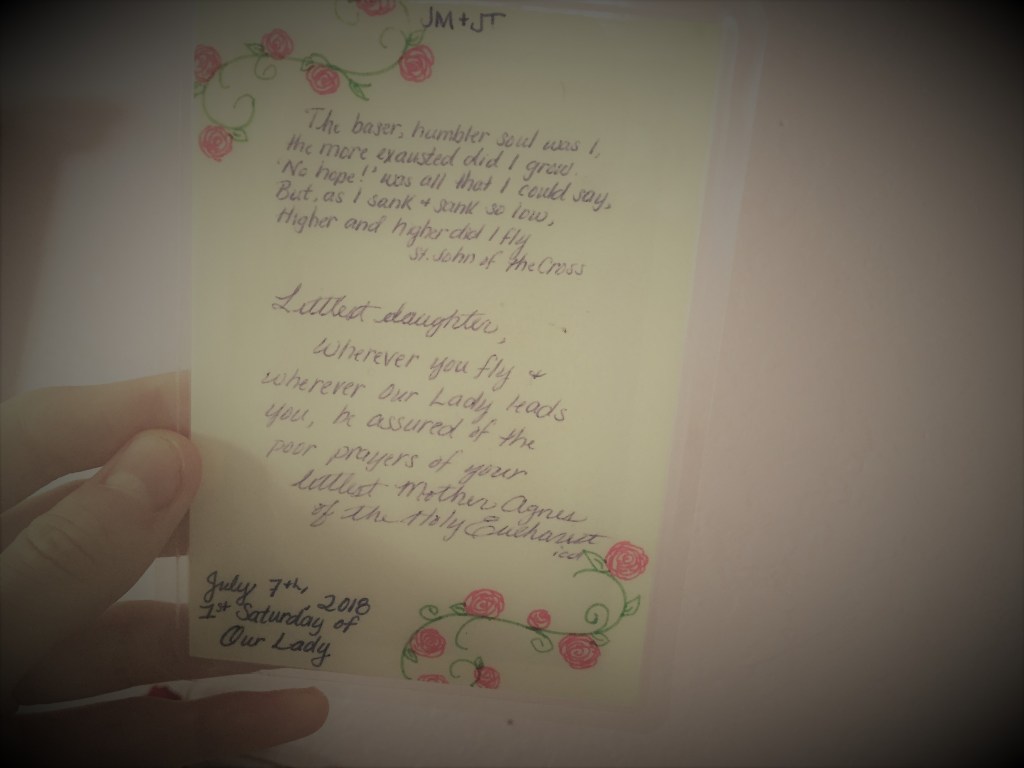 JM+JT
The baser, humbler soul was I,
the more exausted did I grow.
'No hope!' was all that I could say,
But, as I sank + sank so low,
Higher and higher did I fly
St. John of the Cross
Littlest daughter,
Wherever you fly +
wherever Our Lady leads
you, be assured of the
poor prayers of your
littlest Mother Agnes
of the Holy Eucharist
July 7th, 2018
1st Saturday of
Our Lady